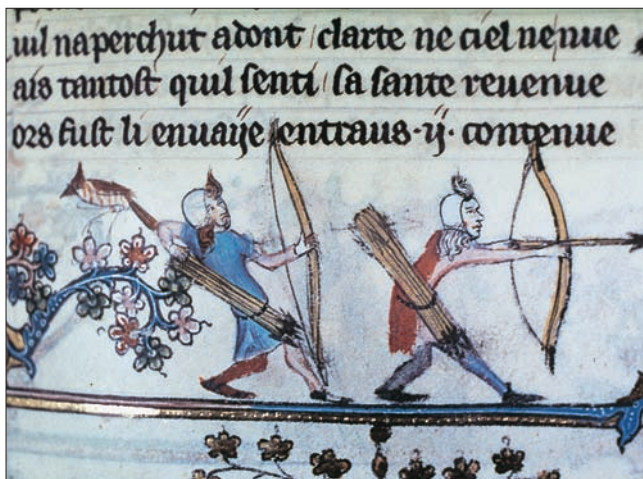 uil naperchut adont / clarte ne ciel ne nue
ais tantost quil senti / sa sante reuenue
ors fust li enuaije entraus · ij · contenue